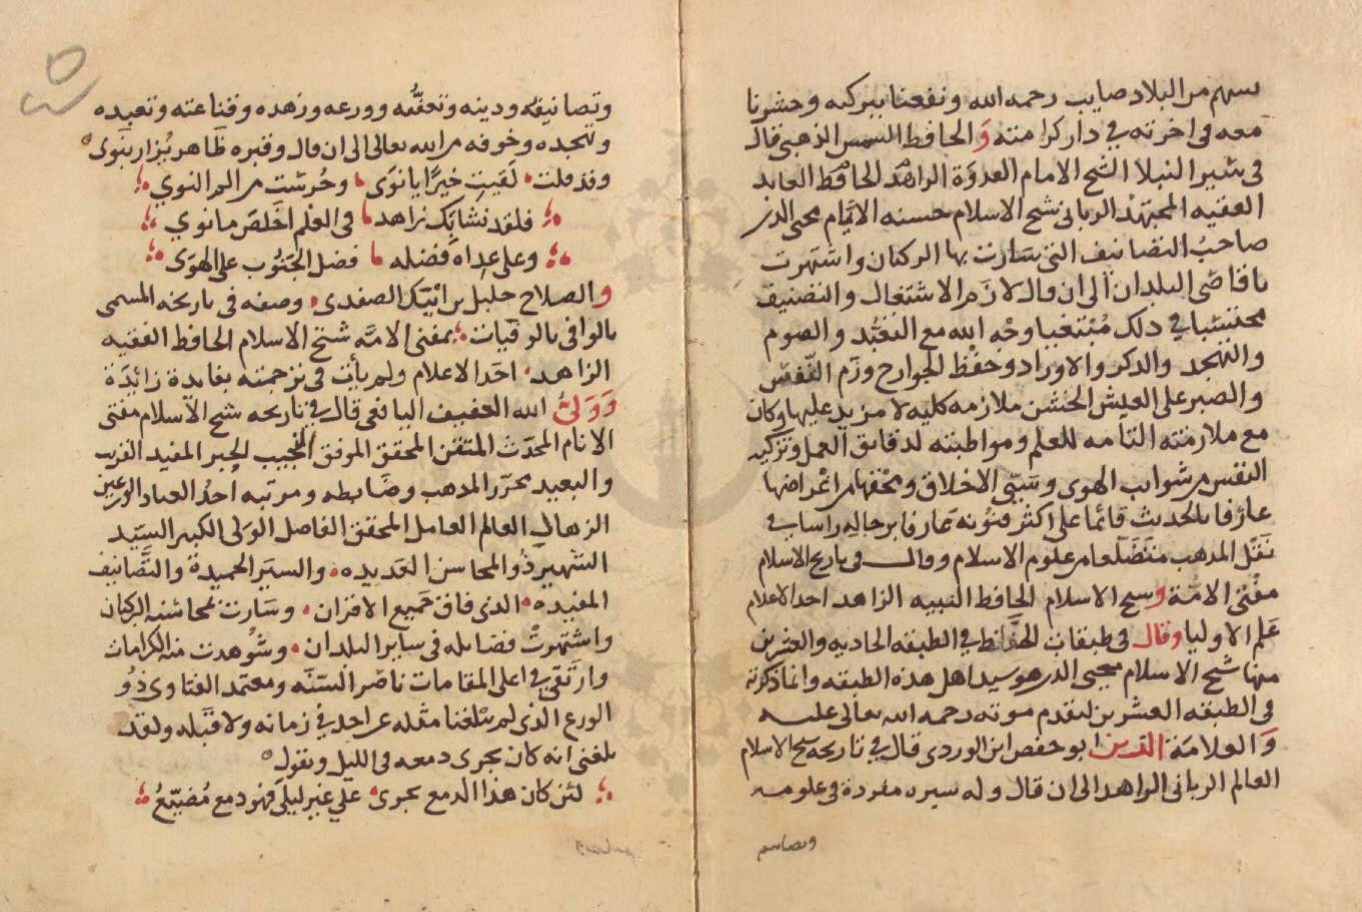 بسهم من البلاد صايب رحمه الله ونفعنا ببركته وحشرنا
معه فى اخرته في دار كرامته وَ الحافظ الشمس الذهبى قال
فى سير النبلا الشيخ الامام القدوة الزاهد الحافظ العابد
الفقيه المجتهد الربانى شيخ الاسلام حسنه الانام محيى الدين
صاحب التصانيف التى سارت بها الركبان واشتهرت
باقاصى البلدان الى ان قال لازم الاشتغال والتصنيف
محتسبا في ذلك مبتغيا وجه الله مع التعبُّد والصوم
والتهجد والذكر والاوراد وحفظ الجوارح وذم النّفس
والصبر على العيش الخشن ملازمه كليه لا مزيد عليها وكان
مع ملازمته التامه للعلم ومواظبته لدقايق العمل وتزكيه
النفس من شوايب الهوى وسَيّئ الاخلاق ومحقها من اغراضها
عارفا بالحديث قائما على اكثر فنونه عارفا برجاله راسا في
نَقْل المذهب متضلعا من علوم الاسلام وقال فى تاريخ الاسلام
مفتى الامّة وشيخ الاسلام الحافظ النبيه الزاهد احد الاعلام
علم الاوليا وقال فى طبقات الحفاظ في الطبقه الحاديه والعشرين
منها شيخ الاسلام محيى الدين هو سيد اهل هذه الطبقه وانما ذكرته
فى الطبقه العشرين لتقدم موته رحمه الله تعالى عليه
وَ العلامة الزين ابو حفص ابن الوردى قال في تاريخه شيخ الاسلام
العالم الربانى الزاهد الى ان قال وله سيره مفردة فى علومه
وتصانيفه
وتصانيفه ودينه وتعفُّفه وورعه وزهده وقناعته وتعبده
وتهجده وخوفه من الله تعالى الى ان قال وقبره ظاهر يُزار بنَوى
وقد قلت لَقيتِ خيرًا يا نَوَى وحُرست من الم النوي
فلقد نشا بِك زاهد فى العلم اخلصَ ما نوي
وعلى عداه فضله فضل الحَبُوب على الهوَى
والصلاح خليل بن ائيبك الصفدى وصفه فى تاريخه المسمى
بالوافى بالوفيات بمفتى الامّه شيخ الاسلام الحافظ الفقيه
الزاهد احد الاعلام ولم يأت فى ترجمته بفايدة زائدة
وَ وَلىُّ الله العفيف اليافعى قال في تاريخه شيخ الاسلام مفتى
الانام المحدّث المتقن المحقق الموفق النجيب الحبر المفيد القريب
والبعيد محرّر المذهب وضابطه ومرتبه احدُ العباد الورعين
الزهاد العالم العامل المحقق الفاضل الولى الكبير السيّد
الشهير ذُو المحاسن العديده والسير الحميدة والتصانيف
المفيده الذى فاق جميع الاقران وسَارت بمحاسنه الركبان
واشتهرتْ فضايله فى ساير البلدان وشُوهدت منه الكرامات
وارتَقى في اعلى المقامات ناصر السنّه ومعتمد الفتاوى ذُو
الورع الذى لم يبلغنا مثله عن احد في زمانه ولا قبله ولقد
بلغنى انه كان يجرى دمعه فى الليل ويقول
لئن كان هذا الدمع يجرى علي غير ليلى فهو دمع مُضيّعُ